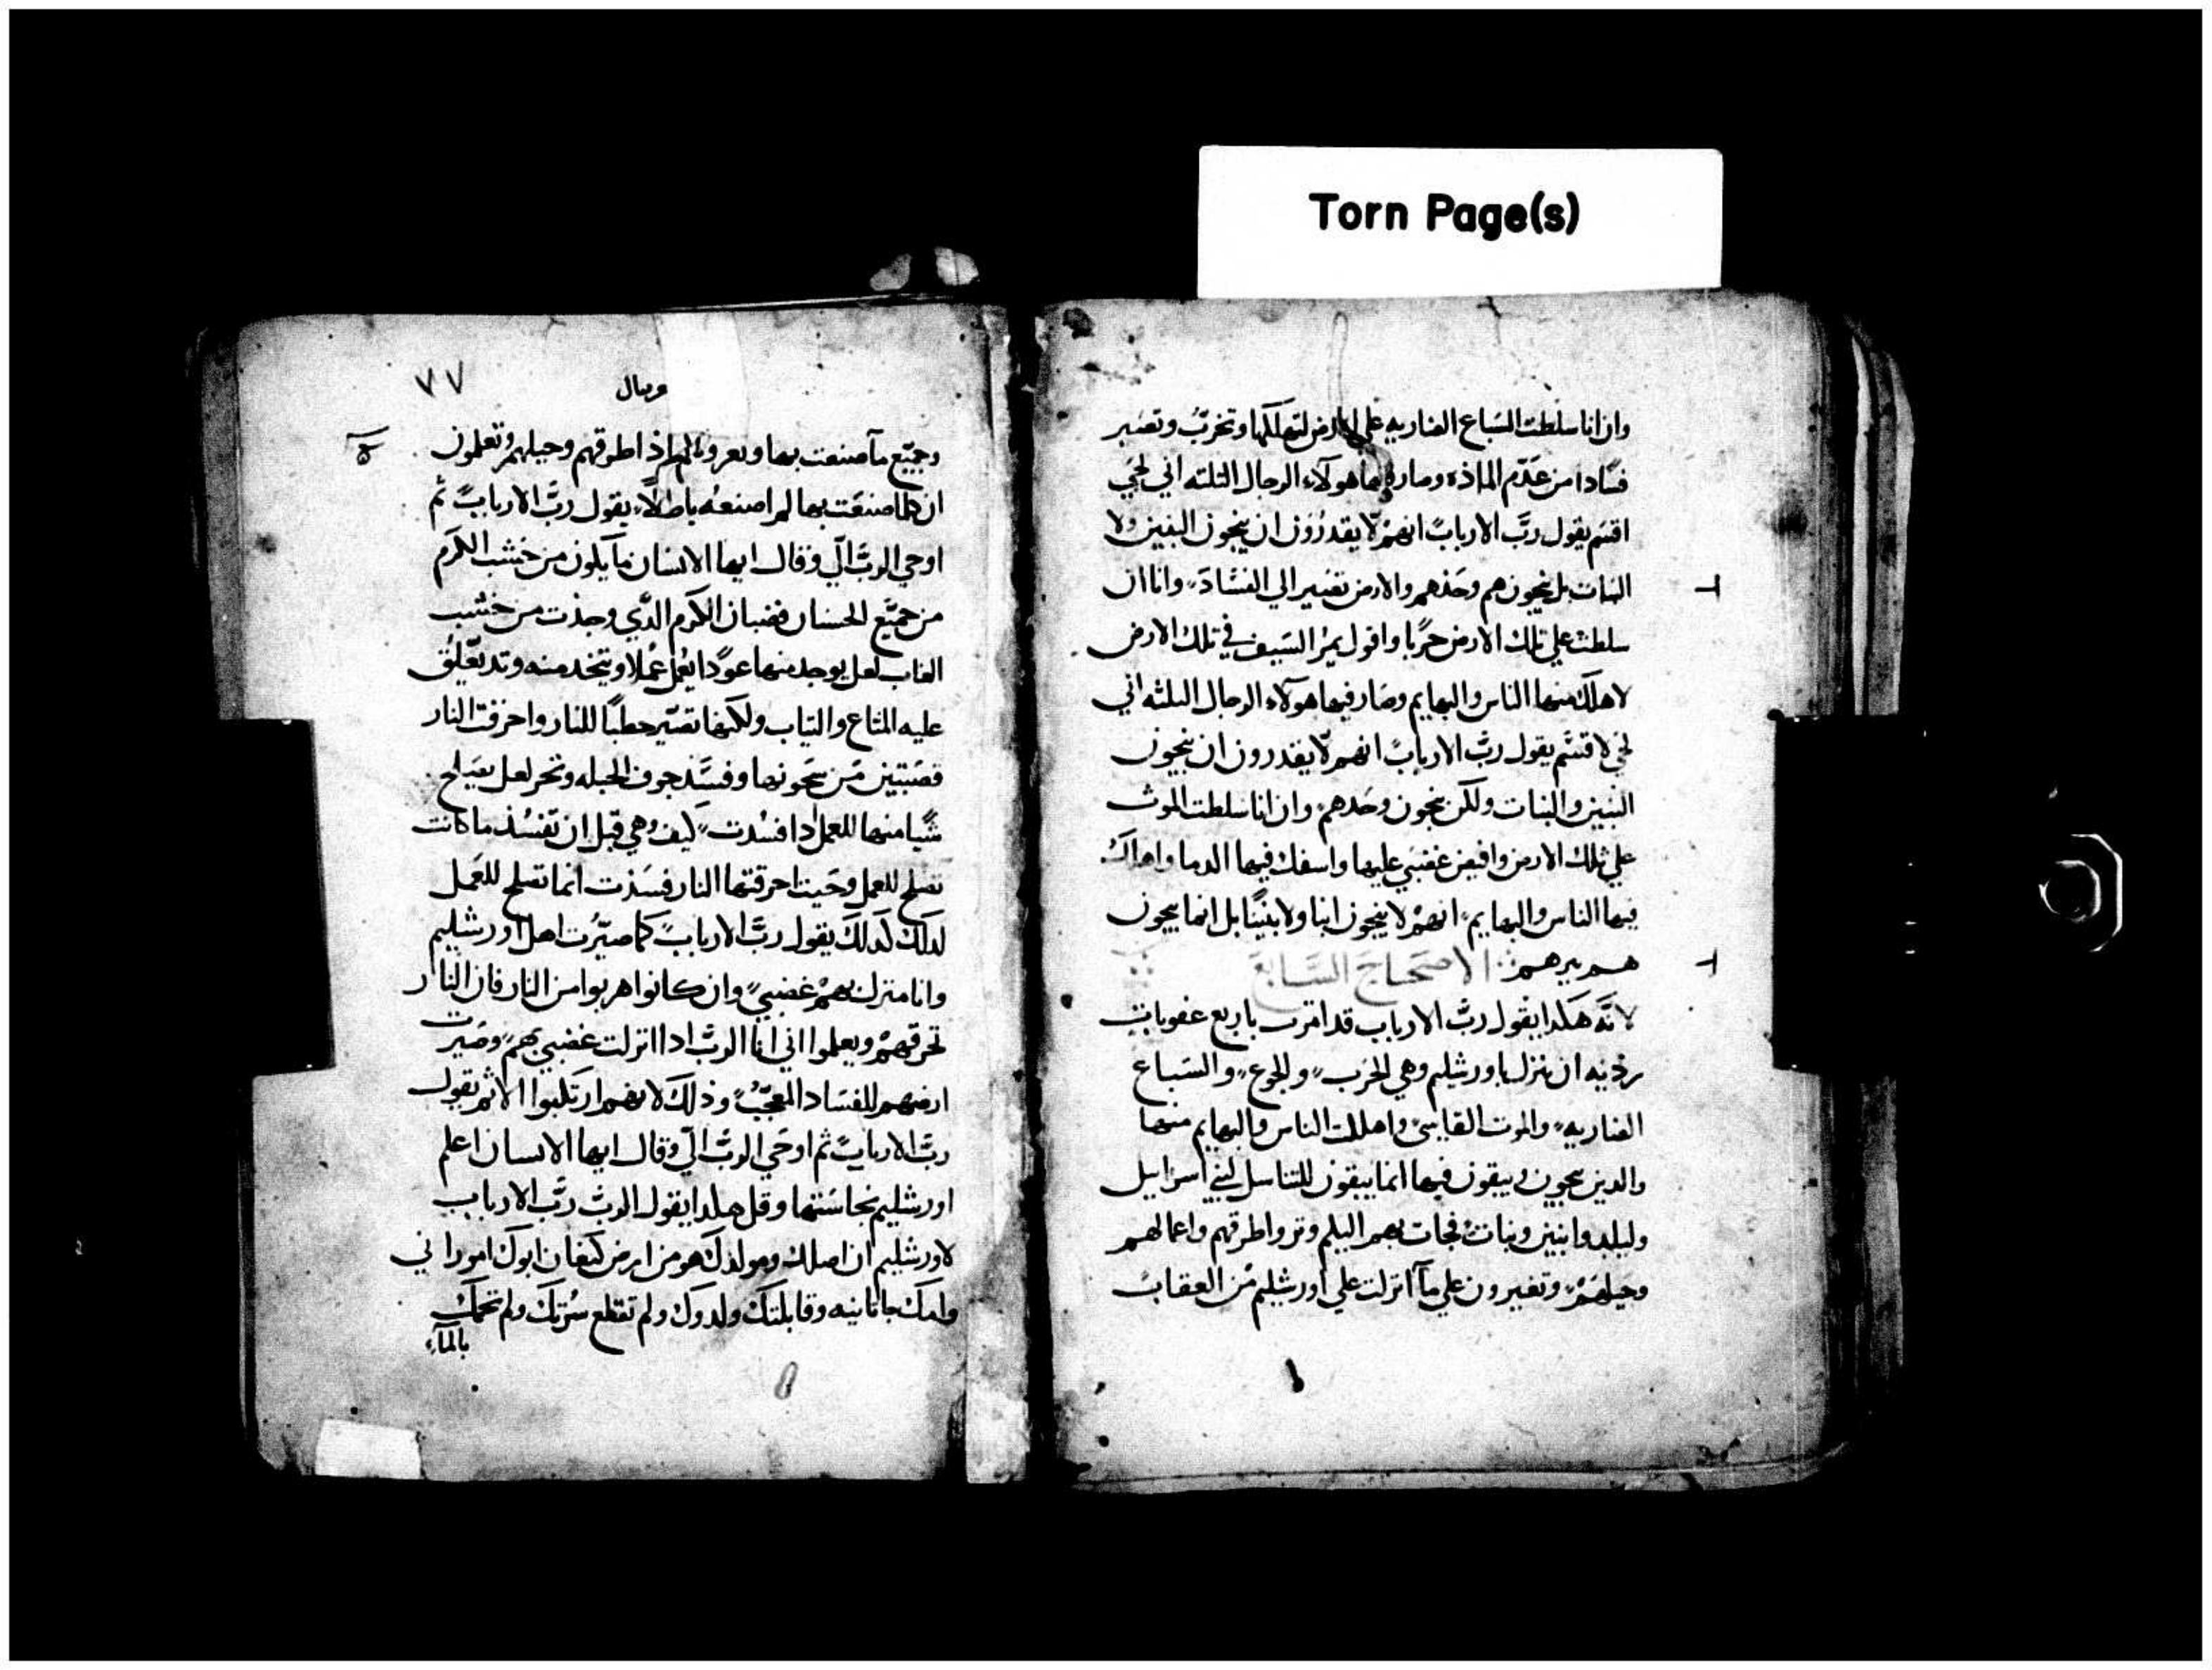 Torn Page(s)
وان انا سلطت السباع الضاريه علي الارض لتهلكها وتخرب وتصير
فسادا من عدم الماذه وصار فيها هولاء الرجال التلته اني لحي
اقسم يقول رب الارباب انهم لا يقدرون ان ينجون البنين ولا
البنات بل ينجون هم وحدهم والارض تصير الي الفساد وانا ان
سلطت علي تلك الارض حربا واقول يمر السيف في تلك الارض
لاهلك منها الناس والبهايم وصار فيها هولاء الرجال التلته اني
لحي لاقسم يقول رب الارباب انهم لا يقدرون ان ينجون
البنين والبنات ولكن ينجون وحدهم وان انا سلطت الموت
علي تلك الارض وافيض غضبي عليها واسفك فيها الدما واهلك
فيها الناس والبهايم انهم لا ينجون ابنا ولا بنينا بل انما ينجون
هم ببرهم الاصحاح السابع
لانه هكدا يقول رب الارباب قد امرت باربع عقوبات
رديه ان تنزل باورشليم وهي الحرب والجوع والسباع
الضاريه والموت القاسي واهلكت الناس والبهايم منها
والدين ينجون ويبقون فيها انما يبقون للتناسل لبني اسراييل
وليلدوا بنين وبنات فجات بهم اليكم وتروا طرقهم واعمالهم
وحيلهم وتصبرون علي ما انزلت علي اورشليم من العقاب
٧٧
حزقيال
وجميع ما صنعت بها اذا طرقهم وحيلهم وتعلمون
ان كلما صنعت بها لم اصنعه باطلا يقول رب الارباب ثم
اوحي الرب الي وقال ايها الانسان ما يكون من خشب الكرم
من جميع اغصان قضبان الكرم الذي وجدت من خشب
الغاب لعل يوجد منها عودا يعمل عملا ويتخد منه وتد يعلق
عليه المتاع والتياب ولكنها تصير حطبا للنار واحرقت النار
قصبتين من نحونها وفسد جوف الحبله ونخر لعل يصلح
شيا منها للعمل ادا فسدت كيف وهي قبل ان تفسد ما كانت
تصلح للعمل وحيت احرقتها النار فسدت انما تصلح للعمل
لدلك لدلك يقول رب الارباب كما صيرت اهل اورشليم
وانا منزل بهم غضبي وان كانوا هربوا من النار فان النار
تحرقهم ويعلموا اني انا الرب ادا انزلت غضبي بهم وصيرت
ارضهم للفساد العجب وذلك لانهم ارتكبوا الاثم يقول
رب الارباب ثم اوحي الرب الي وقال ايها الانسان اعلم
اورشليم نجاستها وقل هكدا يقول الرب رب الارباب
لاورشليم ان اصلك ومولدك هو من ارض كنعان ابوك اموراني
وامك جاتانيه وقابلتك ولدوك ولم تقطع سرتك ولم تحمك
بالماء